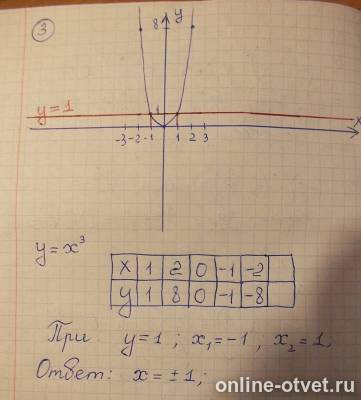 3
y
8
y=1
1
x
-3 -2 -1 1 2 3
y = x³
x 1 2 0 -1 -2
y 1 8 0 -1 -8
При y=1; x₁=-1, x₂=1;
Ответ: x=±1;
online-otvet.ru